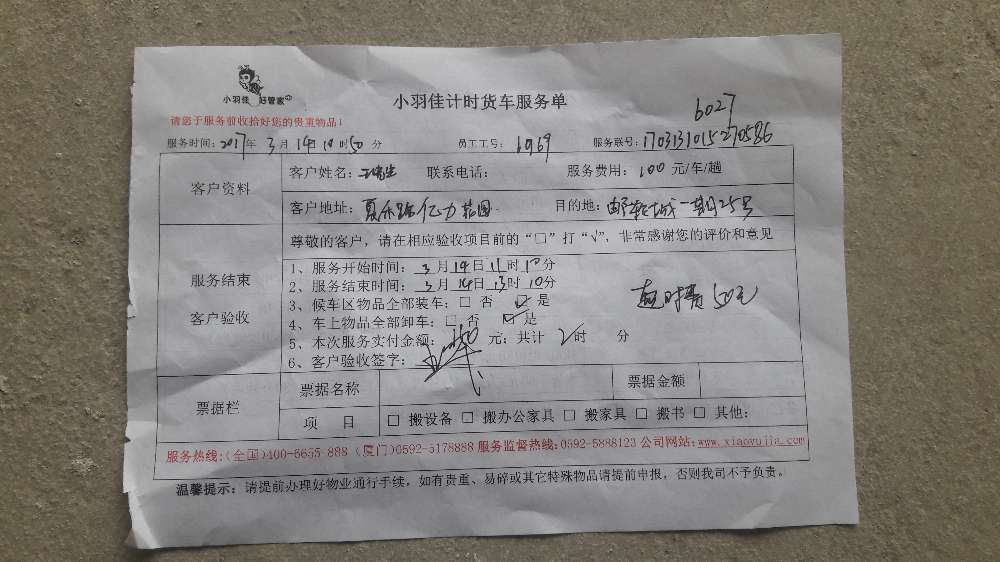 小羽佳 好管家
小羽佳计时货车服务单
6027
请您于服务前收拾好您的贵重物品!
服务时间: 2017年 3月 14日 10时50分 员工工号: 1969 服务联号: 1703131015270586
客户资料
客户姓名: 联系电话: 服务费用: 100 元/车/趟
客户地址: 夏禾路亿力花园 目的地: 邮轮城一期25号
服务结束
客户验收
尊敬的客户, 请在相应验收项目前的“□”打“√”, 非常感谢您的评价和意见
1、服务开始时间: 3月14日11时10分
2、服务结束时间: 3月14日13时10分
3、候车区物品全部装车: □ 否 ☑ 是
超时费50元
4、车上物品全部卸车: □ 否 ☑ 是
5、本次服务实付金额: 150 元; 共计 2时 分
6、客户验收签字:
票据栏
票据名称 票据金额
项 目 □ 搬设备 □ 搬办公家具 □ 搬家具 □ 搬书 □ 其他:
服务热线:(全国)400-5655-888 (厦门)0592-5178888 服务监督热线:0592-5888123 公司网站:www.xiaoyujia.com
温馨提示: 请提前办理好物业通行手续, 如有贵重、易碎或其它特殊物品请提前申报, 否则我司不予负责。